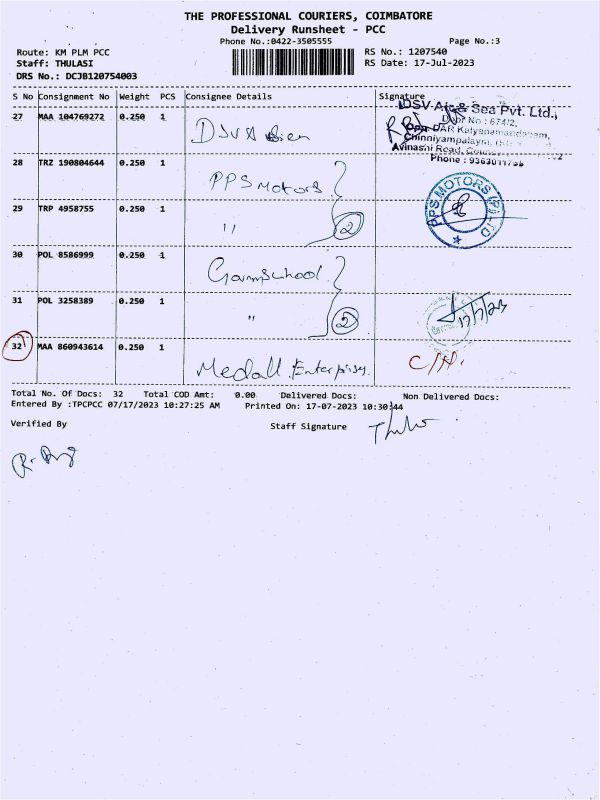 THE PROFESSIONAL COURIERS, COIMBATORE
Delivery Runsheet - PCC
Phone No.:0422-3505555 Page No.:3
Route: KM PLM PCC RS No.: 1207540
Staff: THULASI RS Date: 17-Jul-2023
DRS No.: DCJB120754003
S No Consignment No Weight PCS Consignee Details Signature
27 MAA 104769272 0.250 1
DSV Air & Sea Pvt. Ltd.,
Door No : 674/2,
DAR Kalyanamandapam,
Chinniyampalayam,
Avinashi Road,
Phone :
28 TRZ 190804644 0.250 1 PPS Motors
PPS MOTORS (P) LTD
29 TRP 4958755 0.250 1 " 2
30 POL 8586999 0.250 1
31 POL 3258389 0.250 1 " 2 17/7/23
32 MAA 860943614 0.250 1 Medall Enterprises. C/H.
Total No. Of Docs: 32 Total COD Amt: 0.00 Delivered Docs: Non Delivered Docs:
Entered By :TPCPCC 07/17/2023 10:27:25 AM Printed On: 17-07-2023 10:30:44
Verified By Staff Signature